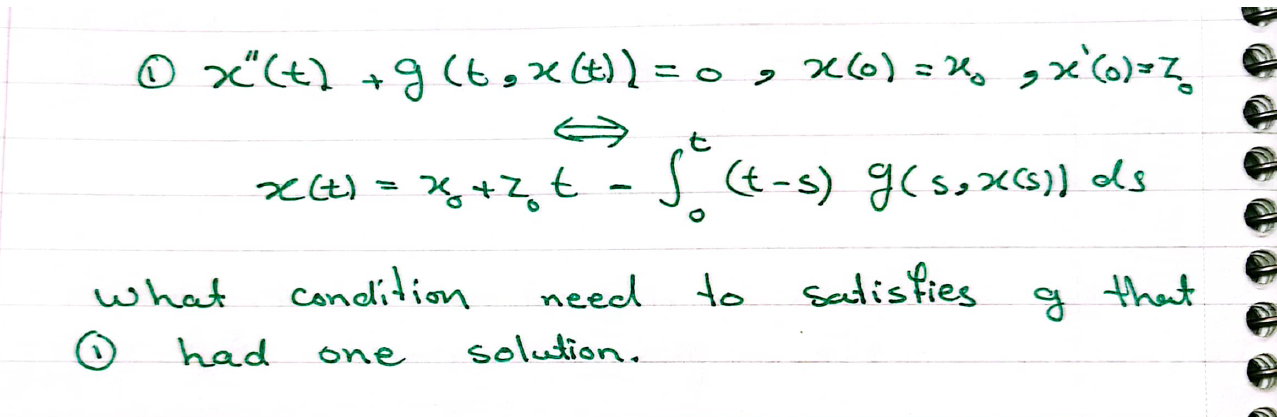 ① x''(t) + g(t, x(t)) = 0 , x(0) = x₀ , x'(0) = z₀
⟺
x(t) = x₀ + z₀ t - ∫₀ᵗ (t-s) g(s, x(s)) ds
what condition need to satisfies g that
① had one solution.